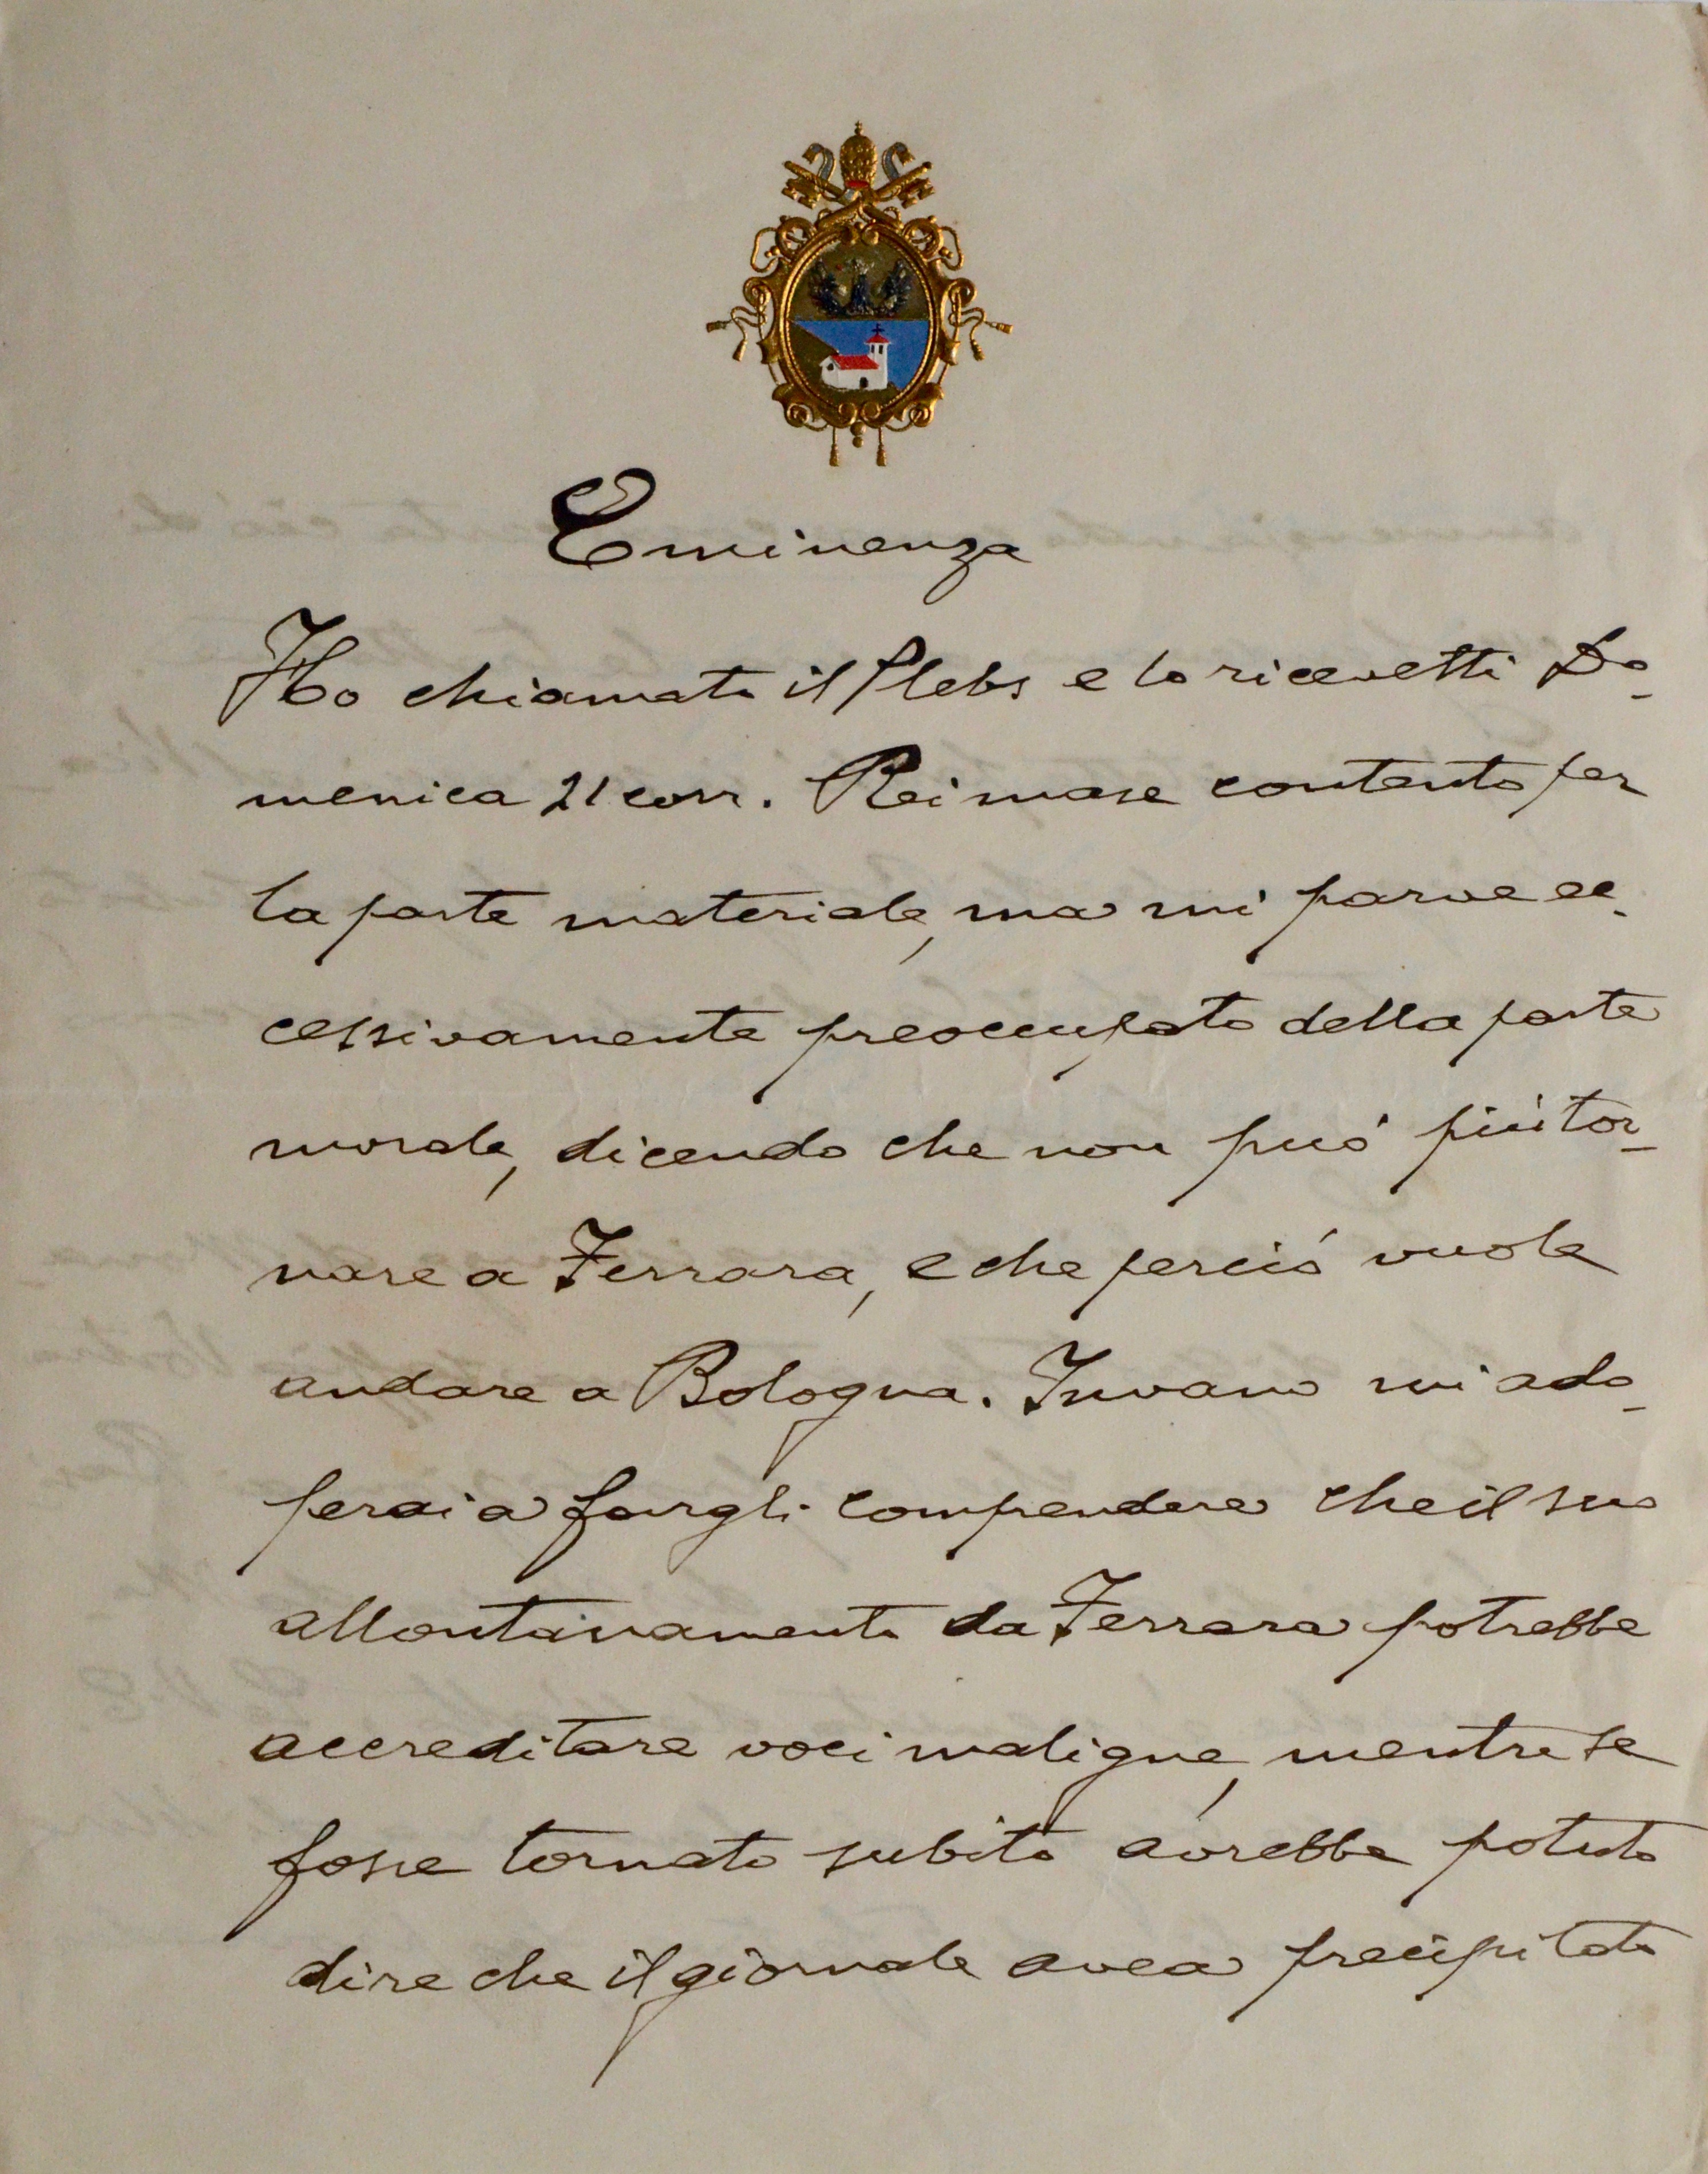 Eminenza
Ho chiamato il Plebs e lo ricevetti Do-
menica 21 corr. Reimase contento per
la parte materiale, ma mi parve ec-
cessivamente preoccupato della parte
morale, dicendo che non può più tor-
nare a Ferrara, e che perciò vuole
andare a Bologna. Invano mi ado-
perai a fargli comprendere che il suo
allontanamento da Ferrara potrebbe
accreditare voci maligne, mentre se
fosse tornato subito avrebbe potuto
dire che il giornale avea precipitato